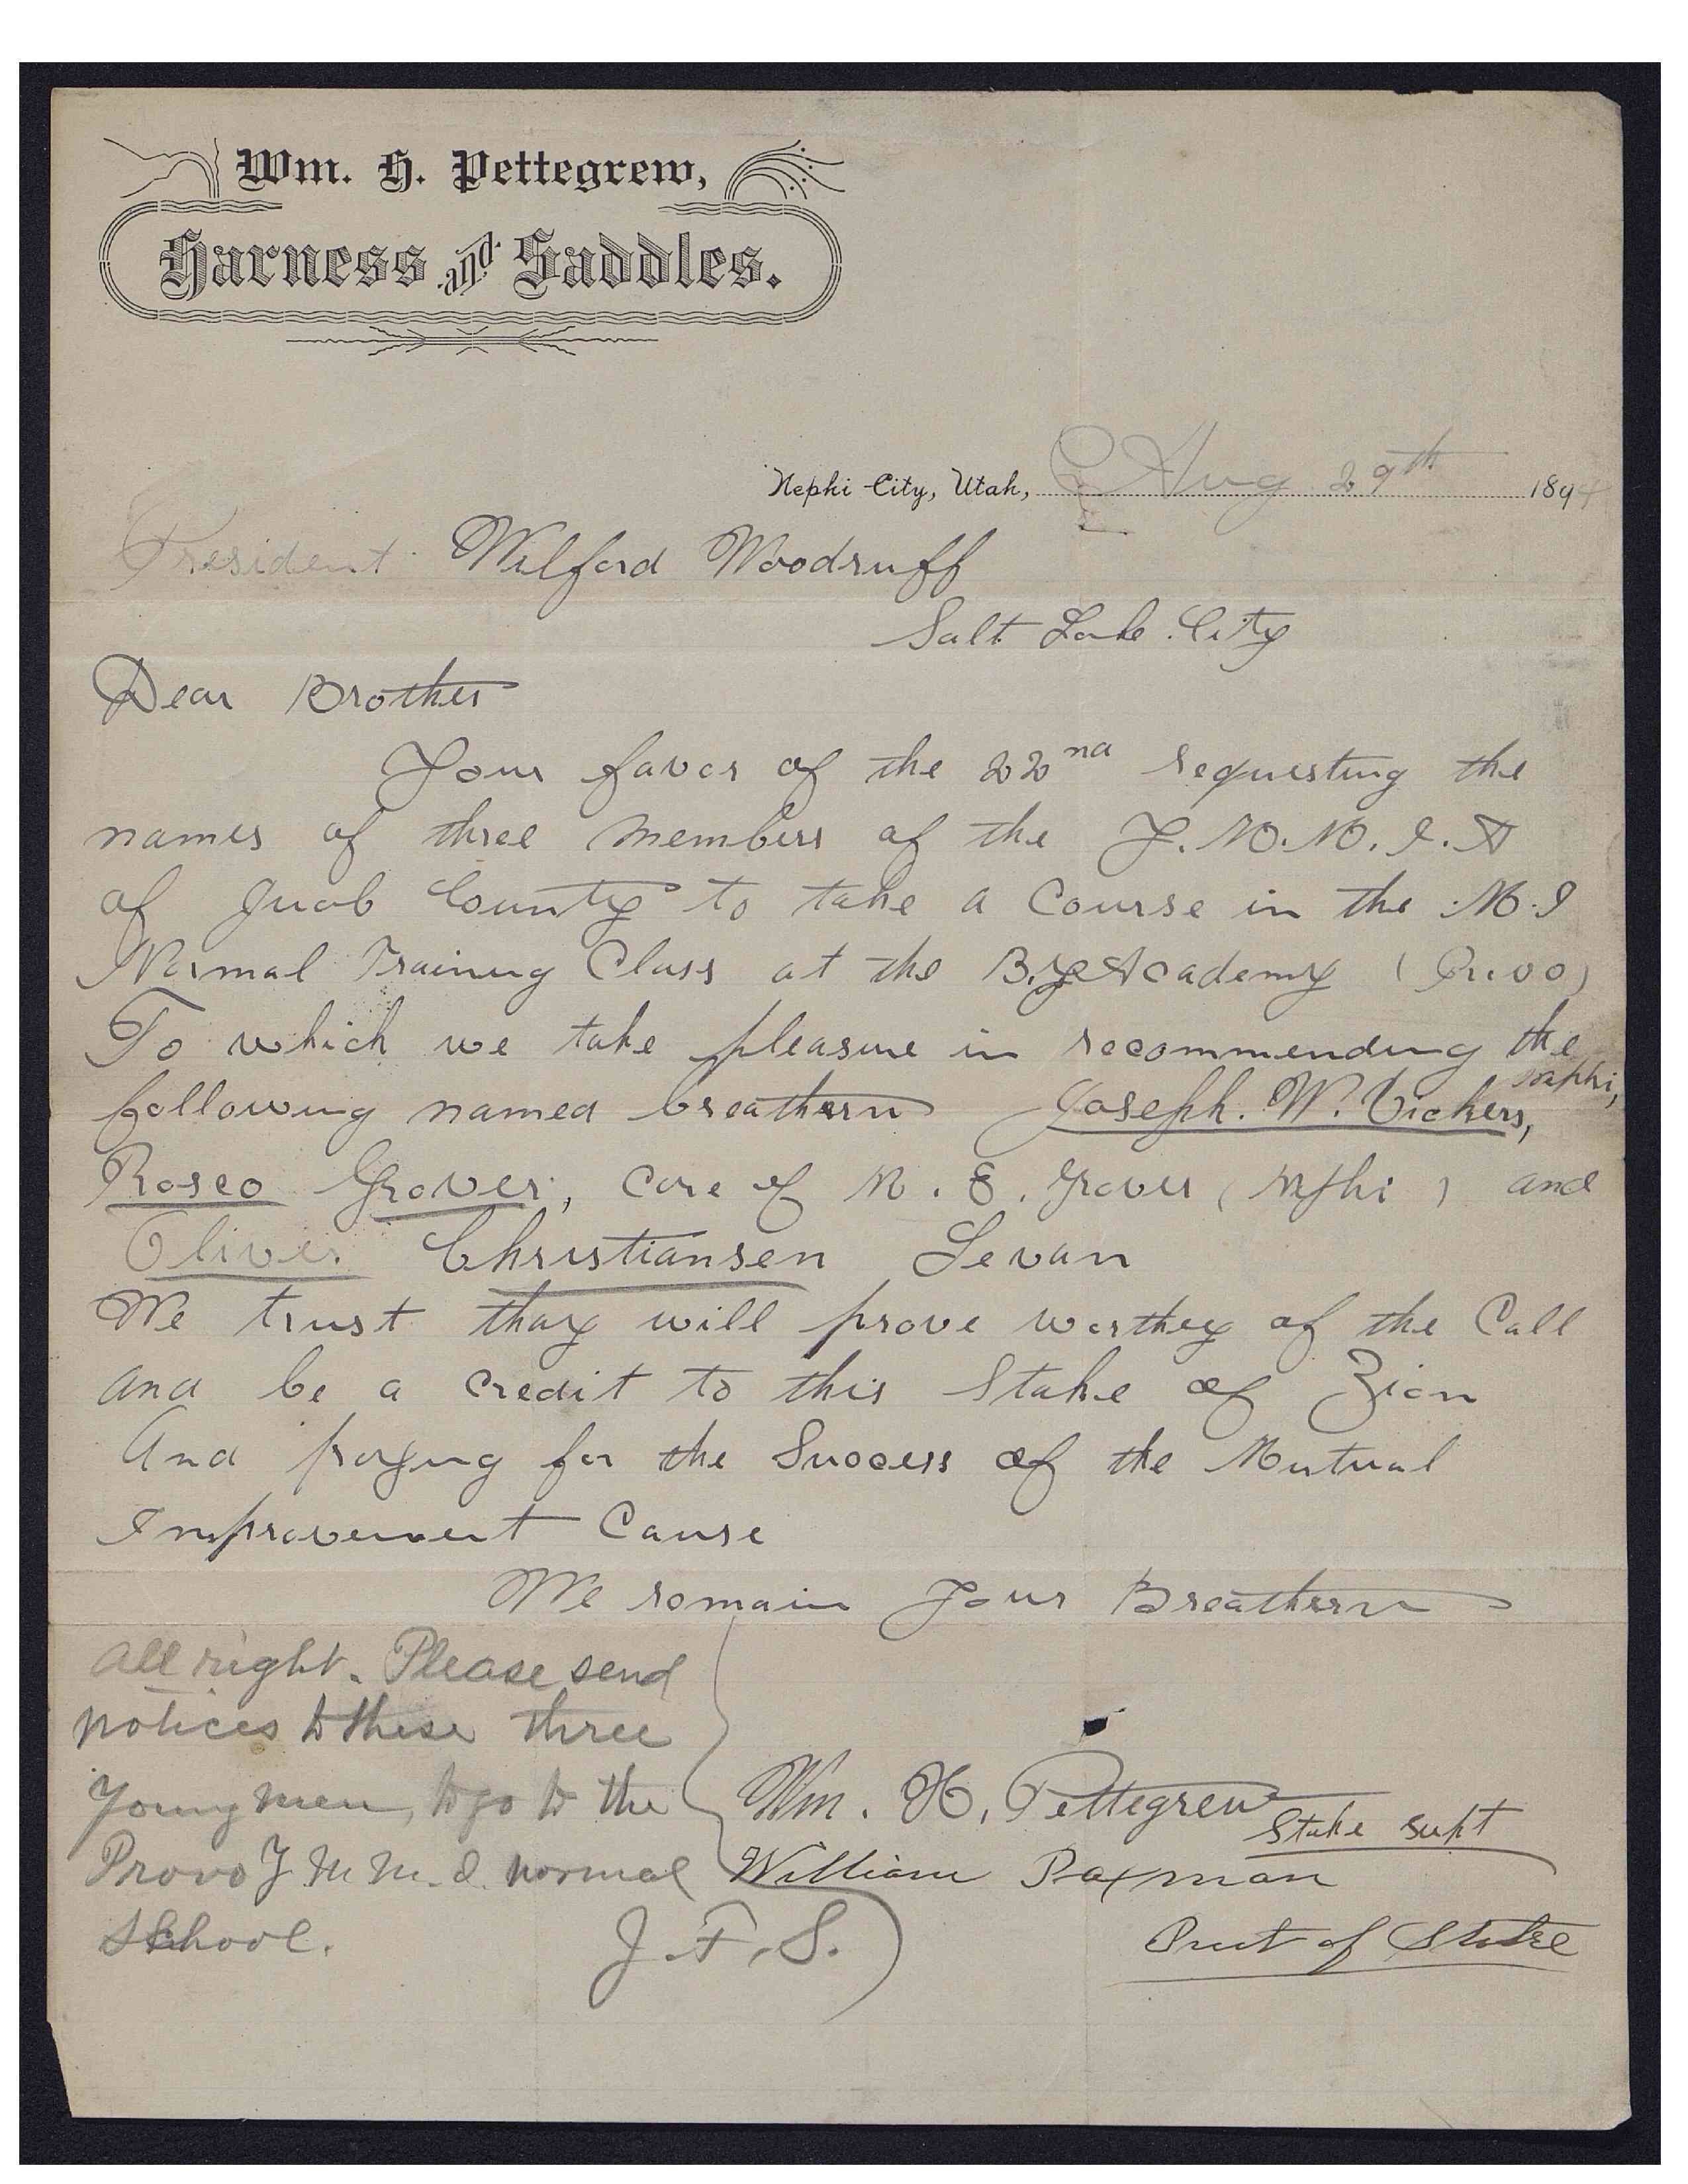 Wm. H. Pettegrew,
Harness and Saddles.
Nephi City, Utah, Aug 29th 1894
President Wilford Woodruff
Salt Lake City
Dear Brother
Your favor of the 22nd requesting the
names of three members of the Y.M.M.I.A
of Juab County to take a Course in the M.I
Normal Training Class at the B.Y Academy (Provo)
To which we take pleasure in recommending the
following named breathern Joseph. W. Vickers, Nephi,
Rosco Grover, Care of M. E. Grover (Nephi) and
Oliver Christiansen Levan
We trust thay will prove worthey of the Call
and be a credit to this Stake of Zion
And praying for the Success of the Mutual
Improvement Cause
We remain Your Breathern
Wm. H. Pettegrew
Stake supt
William Paxman
Prest of Stake
All right. Please send
notices to these three
young men, to go to the
Provo Y. M. M. I. normal
School.
J. F. S.